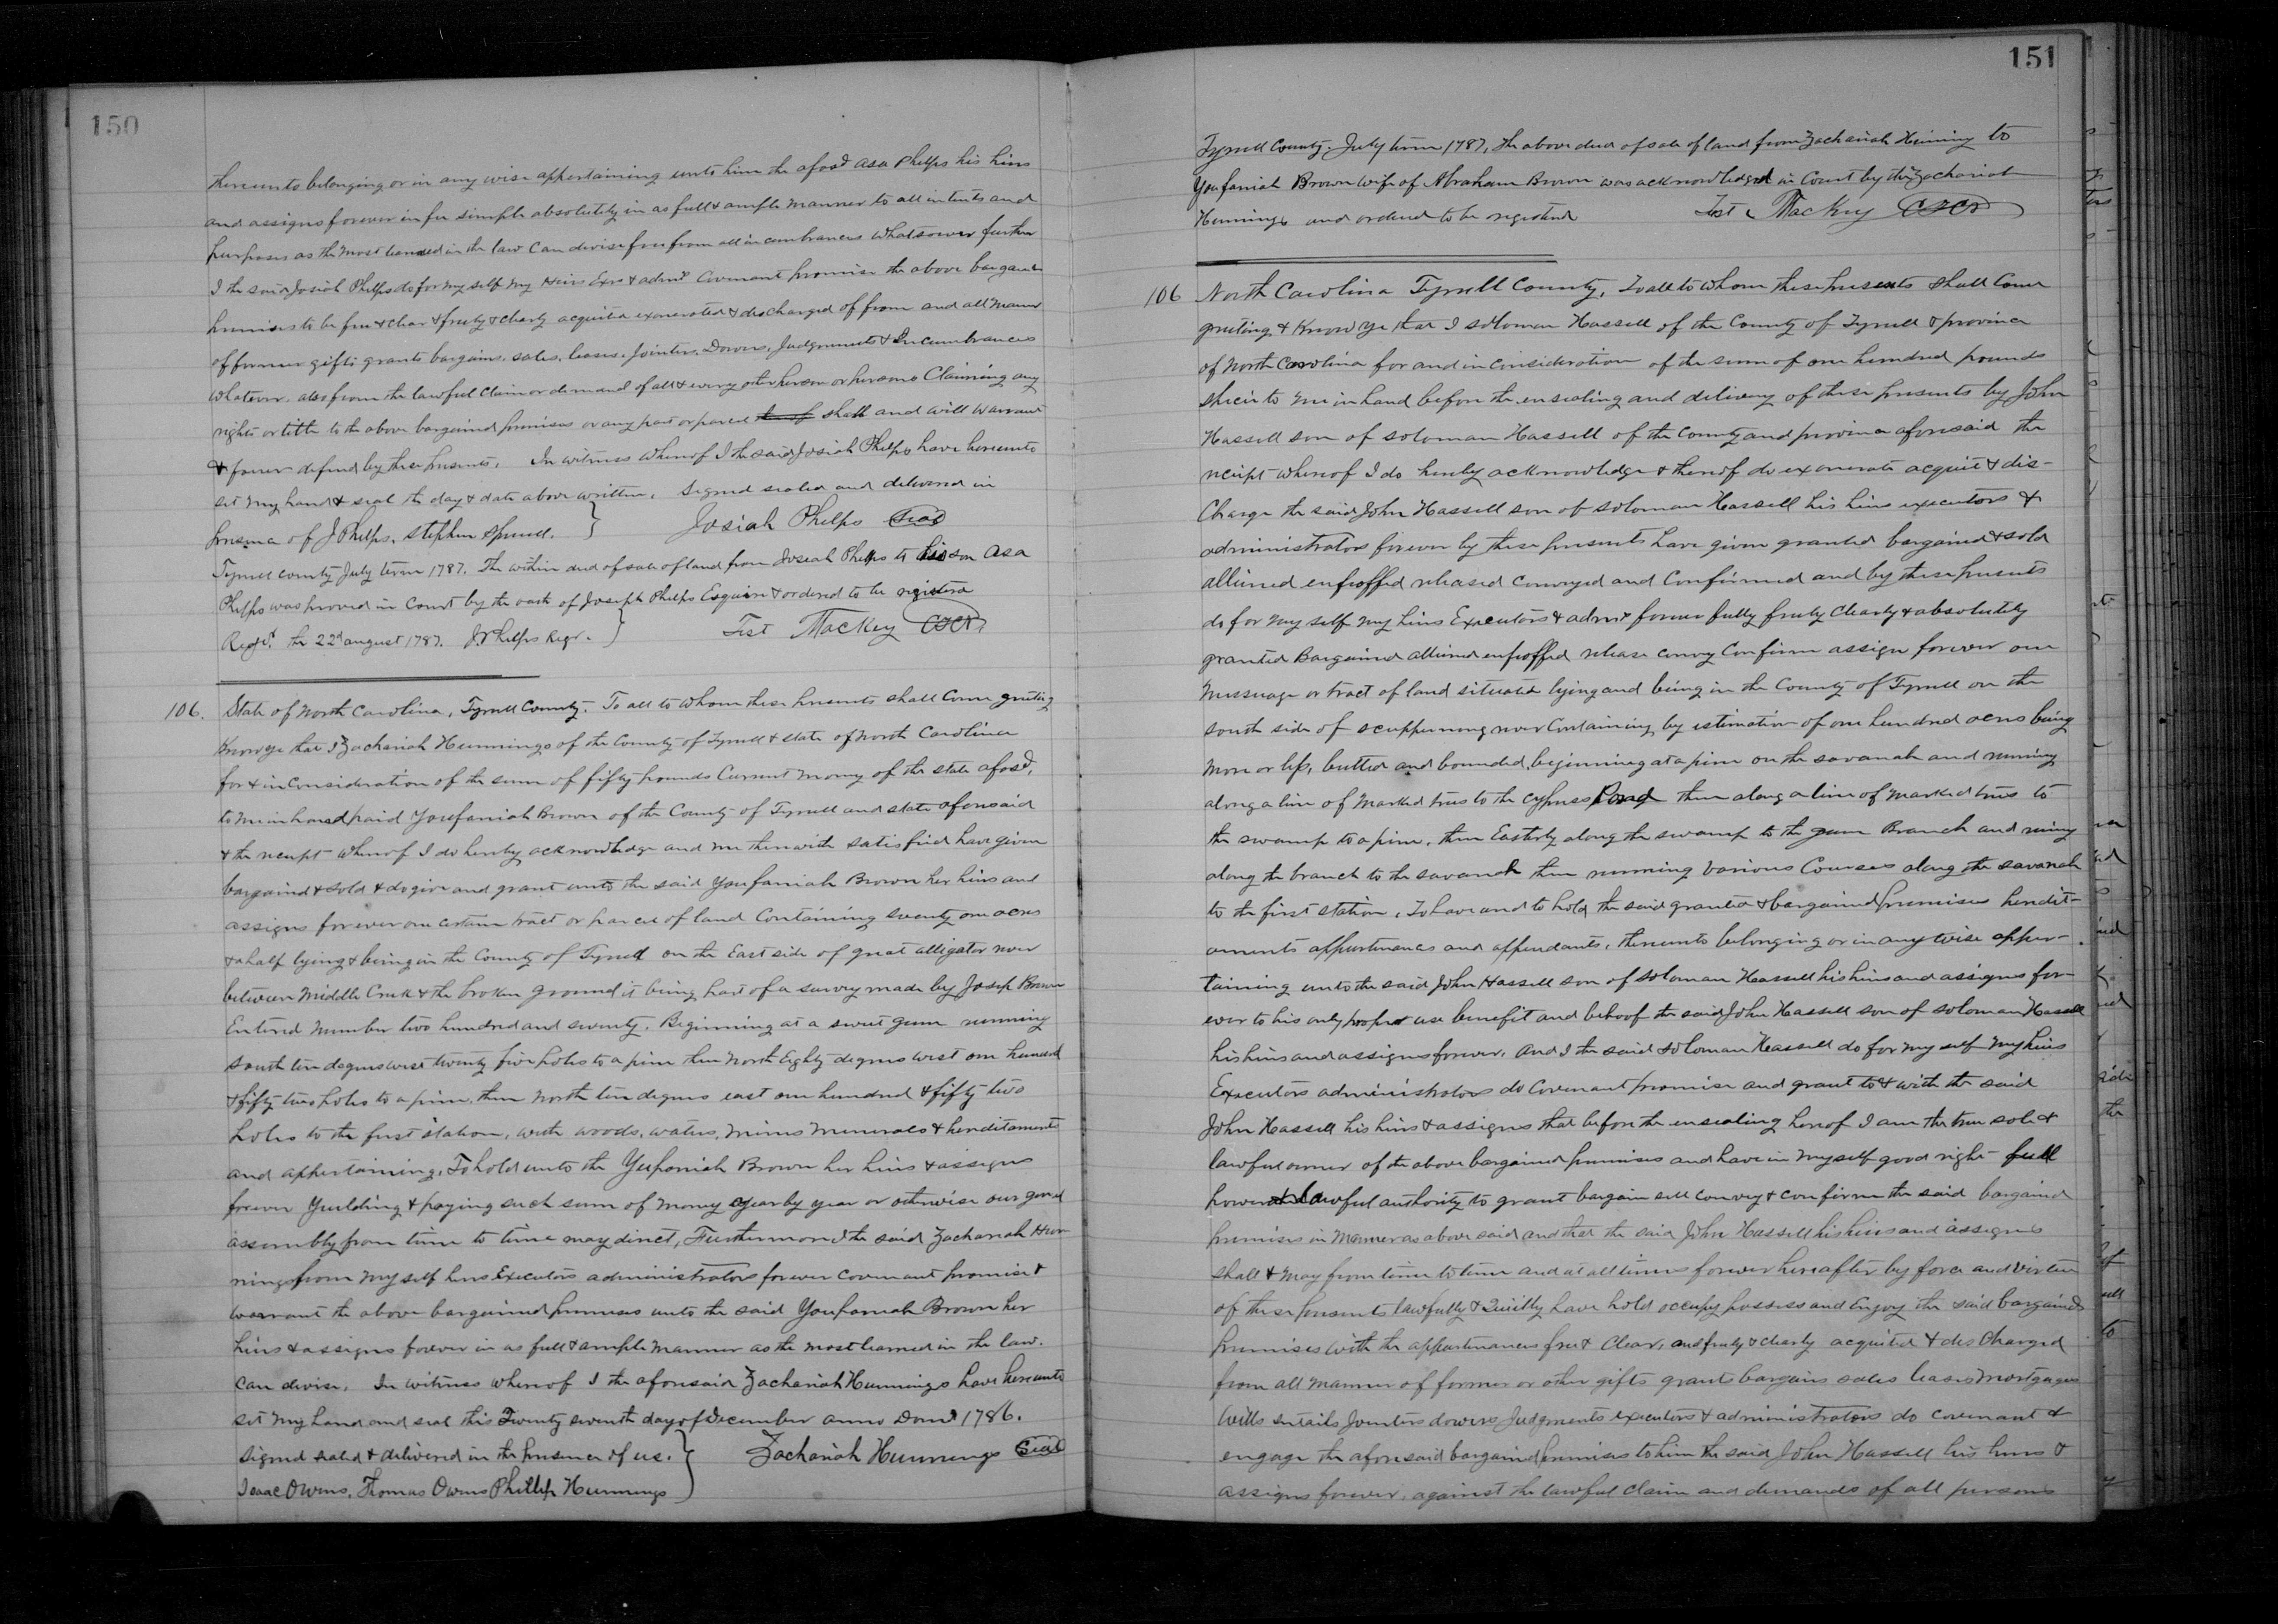 150
thereunto belonging or in any wise appertaining unto him the afosd Asa Phelps his hirs
and assigns forever in fee simple absolutely in as full & ample manner to all intents and
purposes as the most learned in the law can devise free from all incumbrances whatsoever further
I the said Josiah Phelps do for my self my Heirs Exrs & admrs Covenant promise the above bargained
premises to be free & clear & freely & clearly acquited exonerated & discharged of from and all manner
of former gifts grants bargains, sales, leases, Jointers, Dowers, Judgments & Incumbrances
whatever. also from the lawful claim or demand of all & every other person or persons Claiming any
rights or title to the above bargained premises or any part or parcel thereof shall and will warrant
& forever defend by these presents. In witness whereof I the said Josiah Phelps have hereunto
set my hand & seal the day & date above written. Signed sealed and delivered in
presence of J Phelps, Stephen Spruell. } Josiah Phelps Seal
Tyrrell County July term 1787. The within deed of sale of land from Josiah Phelps to his son Asa
Phelps was proved in Court by the oath of Joseph Phelps Esquire & ordered to be registered
Regd. the 22d august 1787. J. Phelps Regr. } Test Mackey CTCT
106. State of North Carolina, Tyrrell County. To all to whom these presents shall come greeting
Know ye that I Zachariah Hennings of the County of Tyrrell & state of North Carolina
for & in consideration of the sum of fifty pounds Current money of the state afosd,
to me in hand paid Youfaniah Brown of the County of Tyrrell and state aforesaid
& the receipt whereof I do hereby acknowledge and me therewith satisfied have given
bargaind & sold & do give and grant unto the said Youfaniah Brown her hirs and
assigns forever one certain tract or parcel of land Containing seventy one acres
& a half lying & being in the County of Tyrrell on the East side of great alligator river
between Middle Creek & the broken ground it being part of a survey made by Joseph Brown
Entered Number two hundred and seventy. Beginning at a sweet gum running
South ten degrees west seventy five poles to a pine then North Eighty degrees west one hundred
& fifty two poles to a pine, then North ten degrees east one hundred & fifty two
poles to the first station, with woods, waters, mines minerals & hereditaments
and appertaining. To hold unto the Yeufaniah Brown her hirs & assigns
forever Yeulding & paying such sum of money year by year or otherwise our general
assembly from time to time may direct, Furthermore I the said Zachariah Hen-
nings from my self heirs Executors administrators forever covenant promise &
warrant the above bargained premises unto the said Youfaniah Brown her
hirs & assigns forever in as full & ample manner as the most learned in the law.
can devise. In witness whereof I the aforesaid Zachariah Hennings have hereunto
set my hand and seal this Twenty seventh day of December anno Domd 1786.
Signed sealed & delivered in the presence of us. } Zachariah Hennings Seal
Isaac Owens, Thomas Owens Phillip Hennings
151
Tyrrell County. July term 1787, The above deed of sale of land from Zachariah Hening to
Youfaniah Brown wife of Abraham Brown was acknowledged in Court by the Zachariah
Hennings and ordered to be registered Test Mackey CTCT
106 North Carolina Tyrrell County, To all to whom these presents shall come
greeting & Know ye that I Soloman Hassell of the County of Tyrrell & province
of North Carolina for and in consideration of the sum of one hundred pounds
specie to me in hand before the ensealing and delivery of these presents by John
Hassell son of Soloman Hassell of the County and province aforesaid the
receipt whereof I do hereby acknowledge & thereof do exonerate acquit & dis-
charge the said John Hassell son of Soloman Hassell his hirs executors &
administrators forever by these presents have given granted bargained & sold
aliened enfeoffed released conveyed and Confirmed and by these presents
do for my self my hirs Executors & admrs forever fully freely clearly & absolutely
granted Bargained aliened enfeoffed release convey Confirm assign forever one
Messuage or tract of land situated lying and being in the County of Tyrrell on the
South side of scuppernong river Containing by estimation of one hundred acres being
more or less, butted and bounded, beginning at a pine on the savanah and running
along a line of marked trees to the cypress Pond then along a line of marked trees to
the swamp to a pine, then Easterly along the swamp to the gum Branch and runing
along the branch to the savanah then running various Courses along the savanah
to the first station. To have and to hold the said granted & bargained premises heredit-
aments appurtenances and appendants, thereunto belonging or in any wise apper-
taining unto the said John Hassell son of Soloman Hassell his hirs and assigns for-
ever to his only proper use benefit and behoof the said John Hassell son of Soloman Hassell
his hirs and assigns forever. And I the said Soloman Hassell do for my self my hirs
Executors administrators do covenant promise and grant to & with the said
John Hassell his hirs & assigns that before the ensealing hereof I am the true sole &
lawful owner of the above bargained premises and have in myself good right full
power and lawful authority to grant bargain sell convey & confirm the said bargained
premises in manner as above said and that the said John Hassell his hirs and assigns
shall & may from time to time and at all times forever hereafter by force and virtue
of these presents lawfully & Quietly have hold occupy possess and Enjoy the said bargained
Premises with the appurtenances free & clear, and freely & clearly acquited & discharged
from all manner of former or other gifts grants bargains sales leases mortgages
Wills Entails Jointers dowers Judgments executors & administrators do covenant &
engage the aforesaid bargained premises to him the said John Hassell his hirs &
assigns forever, against the lawful claim and demands of all persons